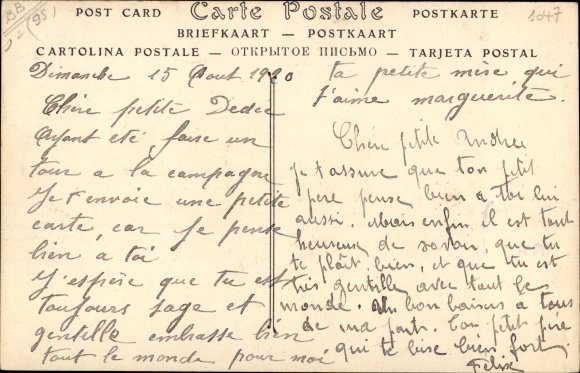 BB
J=(95)
1047
POST CARD Carte Postale POSTKARTE
BRIEFKAART — POSTKAART
CARTOLINA POSTALE — ОТКРЫТОЕ ПИСЬМО — TARJETA POSTAL
Dimanche 15 Aout 1920
Chère petite Dedee
Ayant eté, faire un
tour a la campagne
Je t'envoie une petite
carte, car Je pense
bien a toi
J'espère que tu est
toujours sage et
gentille embrasse bien
tout le monde pour moi
ta petite mère qui
t'aime marguerite.
Chère petite Andrée
je t'assure que ton petit
père pense bien a toi lui
aussi. Mais enfin il est tout
heureuse de savoir, que tu
te plait, bien, et que tu est
très gentille avec tout le
monde. Un bon baisers a tous
de ma part. Ton petit père
qui te bise bien fort.
Felix